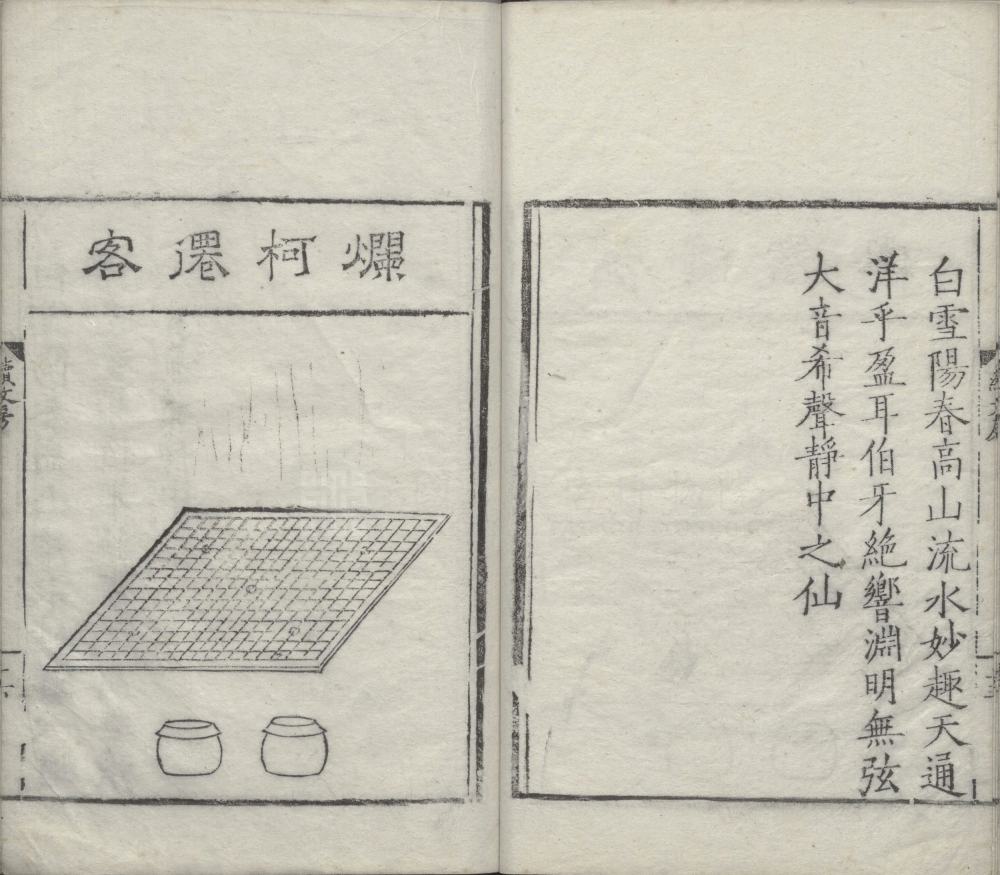 白雪陽春高山流水妙趣天通
洋乎盈耳伯牙絶響淵明無弦
大音希聲靜中之仙
爛柯僊客
續文房